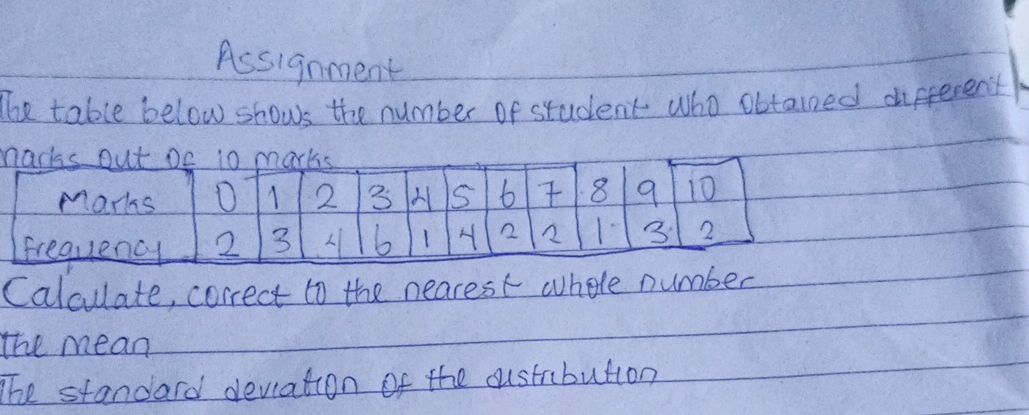 Assignment
The table below shows the number of student who obtained different
marks out of 10 marks
Marks 0 1 2 3 4 5 6 7 8 9 10
Frequency 2 3 4 6 1 4 2 2 1 3 2
Calculate, correct to the nearest whole number
the mean
The standard deviation of the distribution